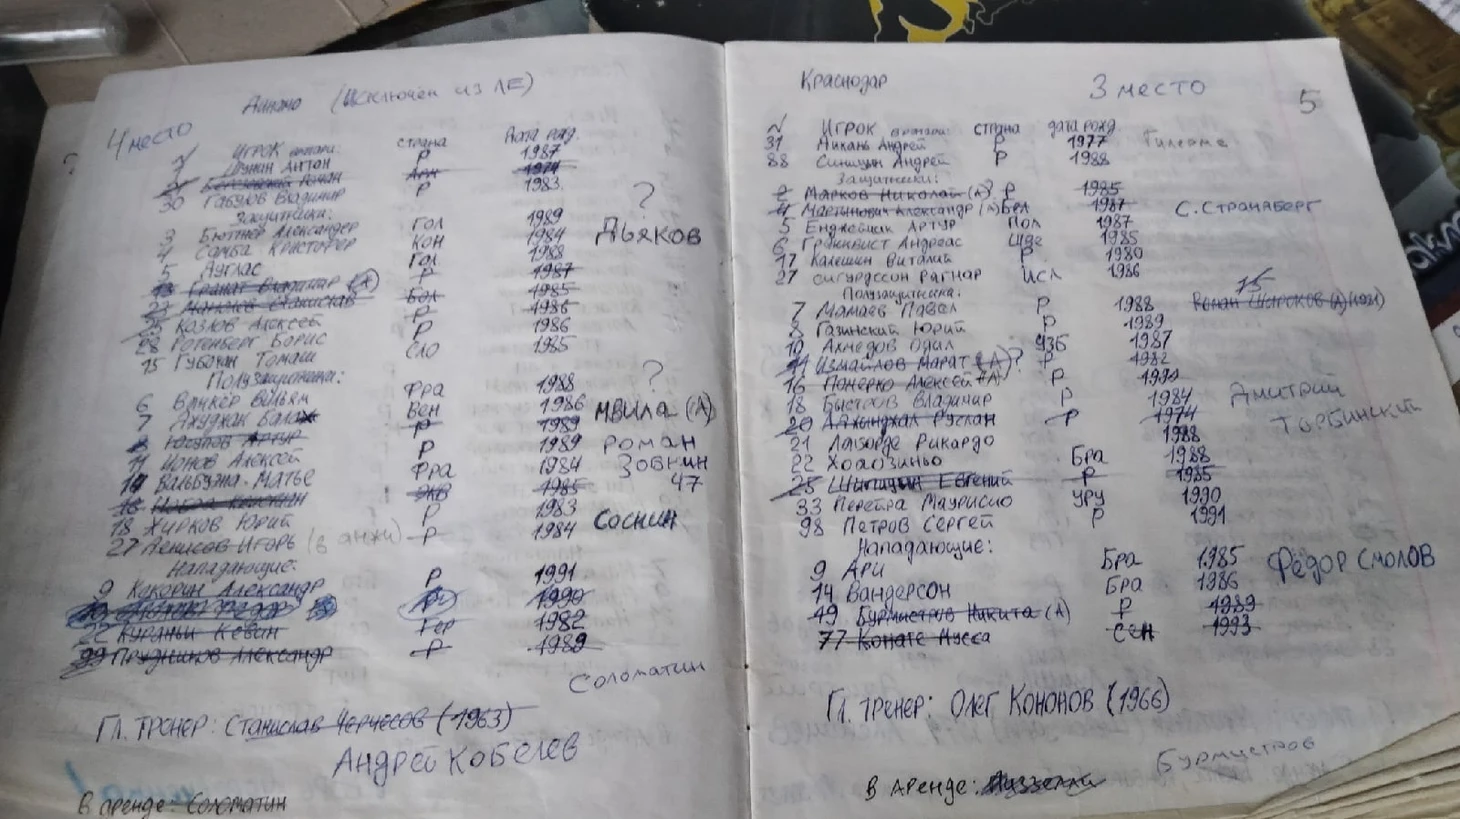 Динамо (Исключён из ЛЕ)
4 место
№ Игрок вратари: страна Дата рожд.
1 Шунин Антон Р 1987
Березовский Роман Арм 1974
30 Габулов Владимир Р 1983
Защитники:
3 Бюттнер Александер Гол 1989
4 Самба Кристофер Кон 1984
5 Дуглас Гол 1988
13 Гранат Владимир (А) Р 1987
23 Манолев Станислав Бол 1985
25 Козлов Алексей Р 1986
Ротенберг Борис Р 1986
15 Губочан Томаш Сло 1985
?
Дьяков
Полузащитника:
6 Вянкер Вильям Фра 1988
7 Джуджак Балаж Вен 1986
8 Юсупов Артур Р 1989
11 Ионов Алексей Р 1989
14 Вальбуэна Матье Фра 1984
Нобоа Кристиан Экв 1985
18 Жирков Юрий Р 1983
27 Денисов Игорь (в анжи) Р 1984
?
Мвила (А)
Роман
Зобнин
47
Соснин
Нападающие:
9 Кокорин Александр Р 1991
1990
22 Кураньи Кевин Гер 1982
99 Прудников Александр Р 1989
Соломатин
Гл. тренер: Станислав Черчесов (1963)
Андрей Кобелев
В аренде: Соломатин
Краснодар 3 место 5
№ Игрок вратари: страна дата рожд
31 Дикань Андрей Р 1977
88 Синицын Андрей Р 1988
Гилерме
Защитники:
2 Марков Николай (А)? Р 1985
4 Мартынович Александр (А) Бел 1987
5 Енджейчик Артур Пол 1987
6 Гранквист Андреас Шве 1985
17 Калешин Виталий Р 1980
27 Сигурдссон Рагнар Исл 1986
С. Странаберг
Полузащитника:
7 Мамаев Павел Р 1988
8 Газинский Юрий Р 1989
10 Ахмедов Одил Узб 1987
11 Измайлов Марат (А)? Р 1982
16 Понерко Алексей (А) Р 1990
18 Быстров Владимир Р 1984
20 Алхынджал Руслан Р 1974
21 Лаборде Рикардо 1988
22 Жоаозиньо Бра 1988
25 Шипицин Евгений Р 1985
33 Перейра Маурисио Уру 1990
98 Петров Сергей Р 1991
15
Роман Широков (А) (1981)
Дмитрий
Торбинский
Нападающие:
9 Ари Бра 1985
14 Вандерсон Бра 1986
49 Бурмистров Никита (А) Р 1989
77 Конате Мусса Сен 1993
Фёдор Смолов
Гл. тренер: Олег Кононов (1966)
Бурмистров
В аренде: